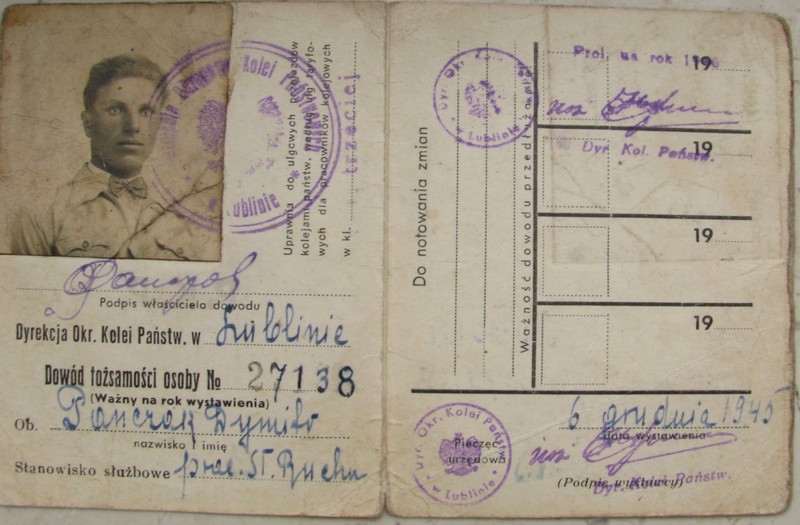 Uprawnia do ulgowych przejazdów
kolejami państw. według ulg taryfo-
wych dla pracowników kolejowych
w kl. trzeciej
Podpis właściciela dowodu
Dyrekcja Okr. Kolei Państw. w Lublinie
Dowód tożsamości osoby № 27138
(Ważny na rok wystawienia)
Ob. Pańczak Dymitr
nazwisko i imię
Stanowisko służbowe prac. St. Ruchu
Do notowania zmian
Ważność dowodu przedłużono
Dyr. Okr. Kolei
w Lublinie
Prol. na rok 19
19
inż
Dyr. Kol. Państw.
19
19
19
6 grudnia 1945
data wystawienia
Dyr. Okr. Kolei Państw.
w Lublinie
Pieczęć
urzędowa
inż
(Podpis wystawcy)
Dyr. Kol. Państw.